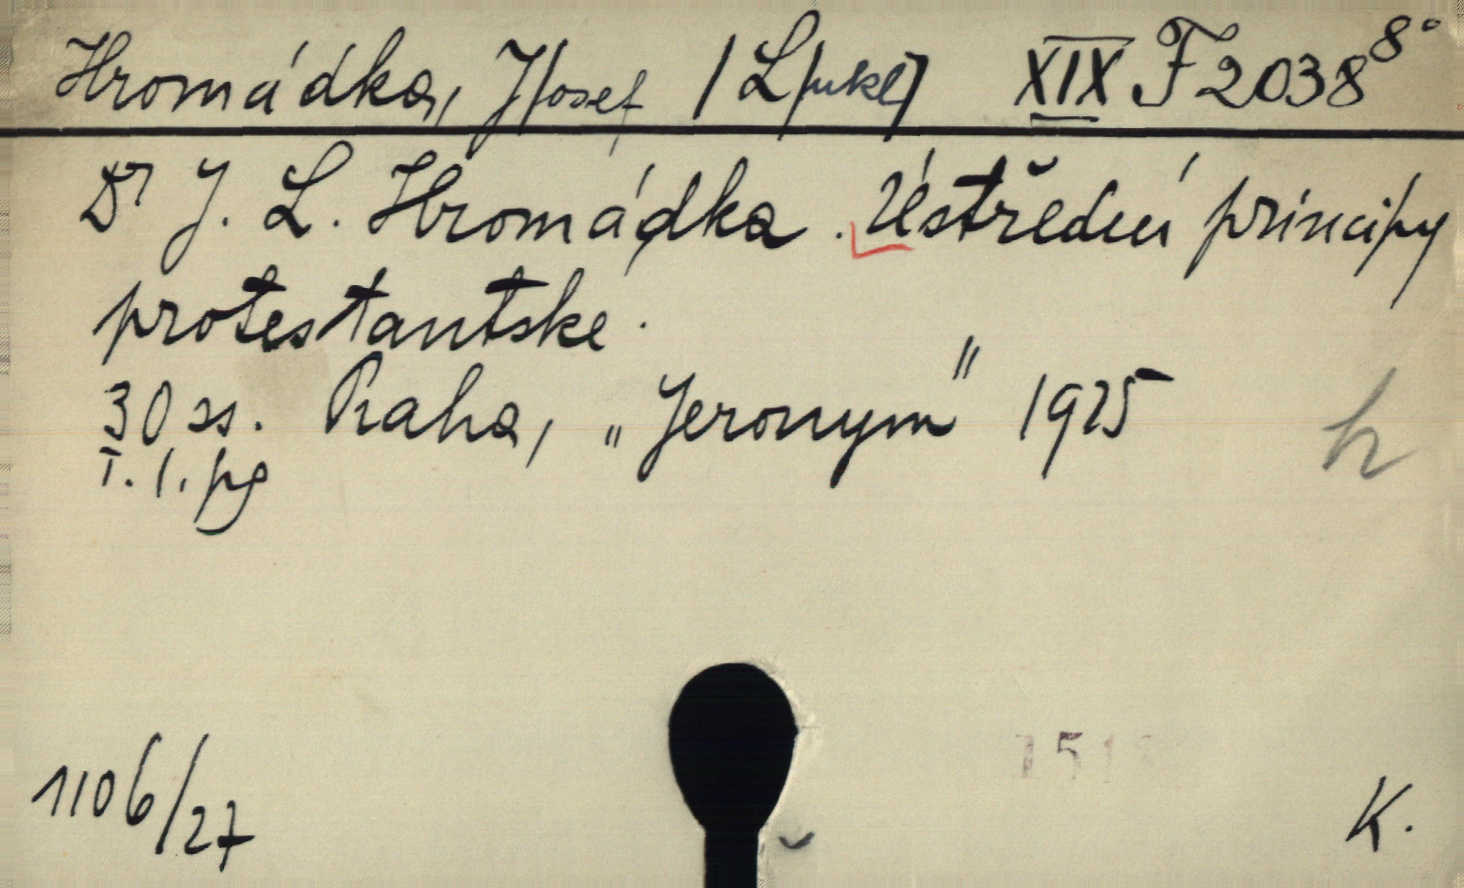 Hromádka, J[osef] L[ukl] XIX F 2038 8°
Dr J. L. Hromádka. Ústřední principy
protestantske.
30 ss. Praha, „Jeronym" 1925
I. 1. pg
h
1106/27
K.